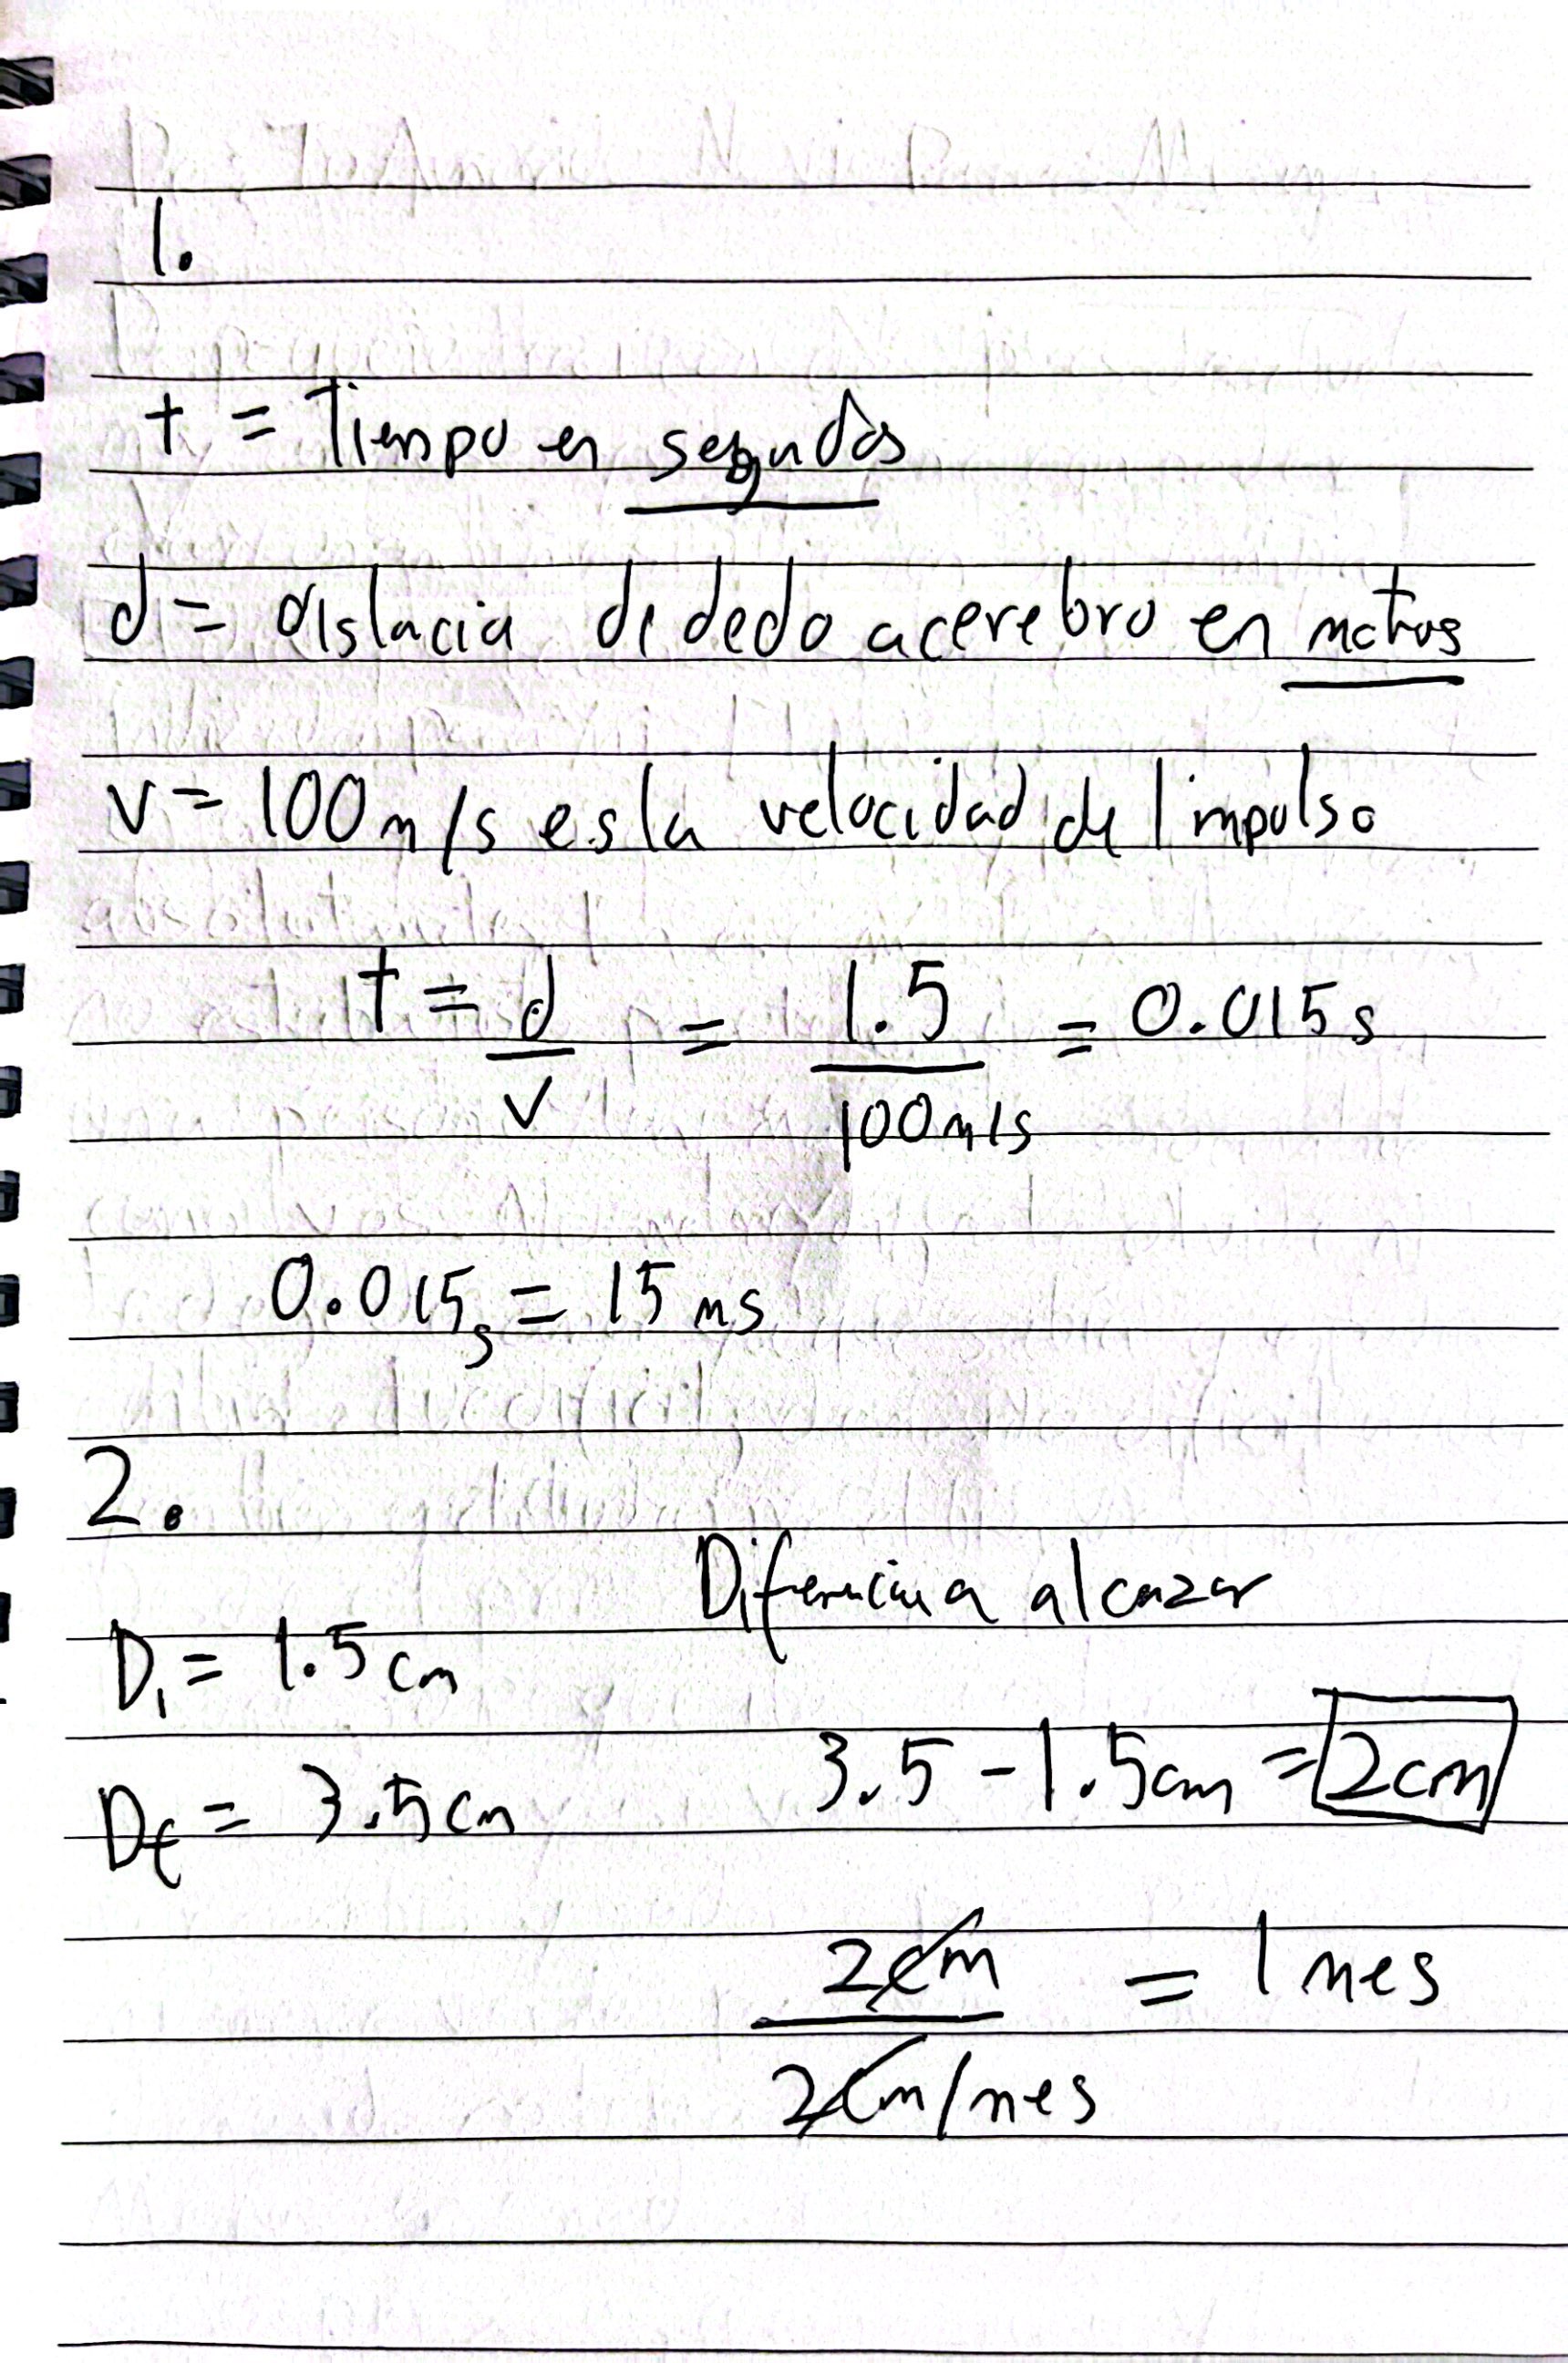 1.
t = Tiempo en segundos
d = distacia de dedo a cerebro en metros
v = 100 m/s es la velocidad del impulso
t = d/v = 1.5/100 m/s = 0.015 s
0.015 s = 15 ms
2.
Diferencia a alcazar
Di = 1.5 cm
3.5 - 1.5 cm = 2 cm
Df = 3.5 cm
2 cm / 2 cm/mes = 1 mes